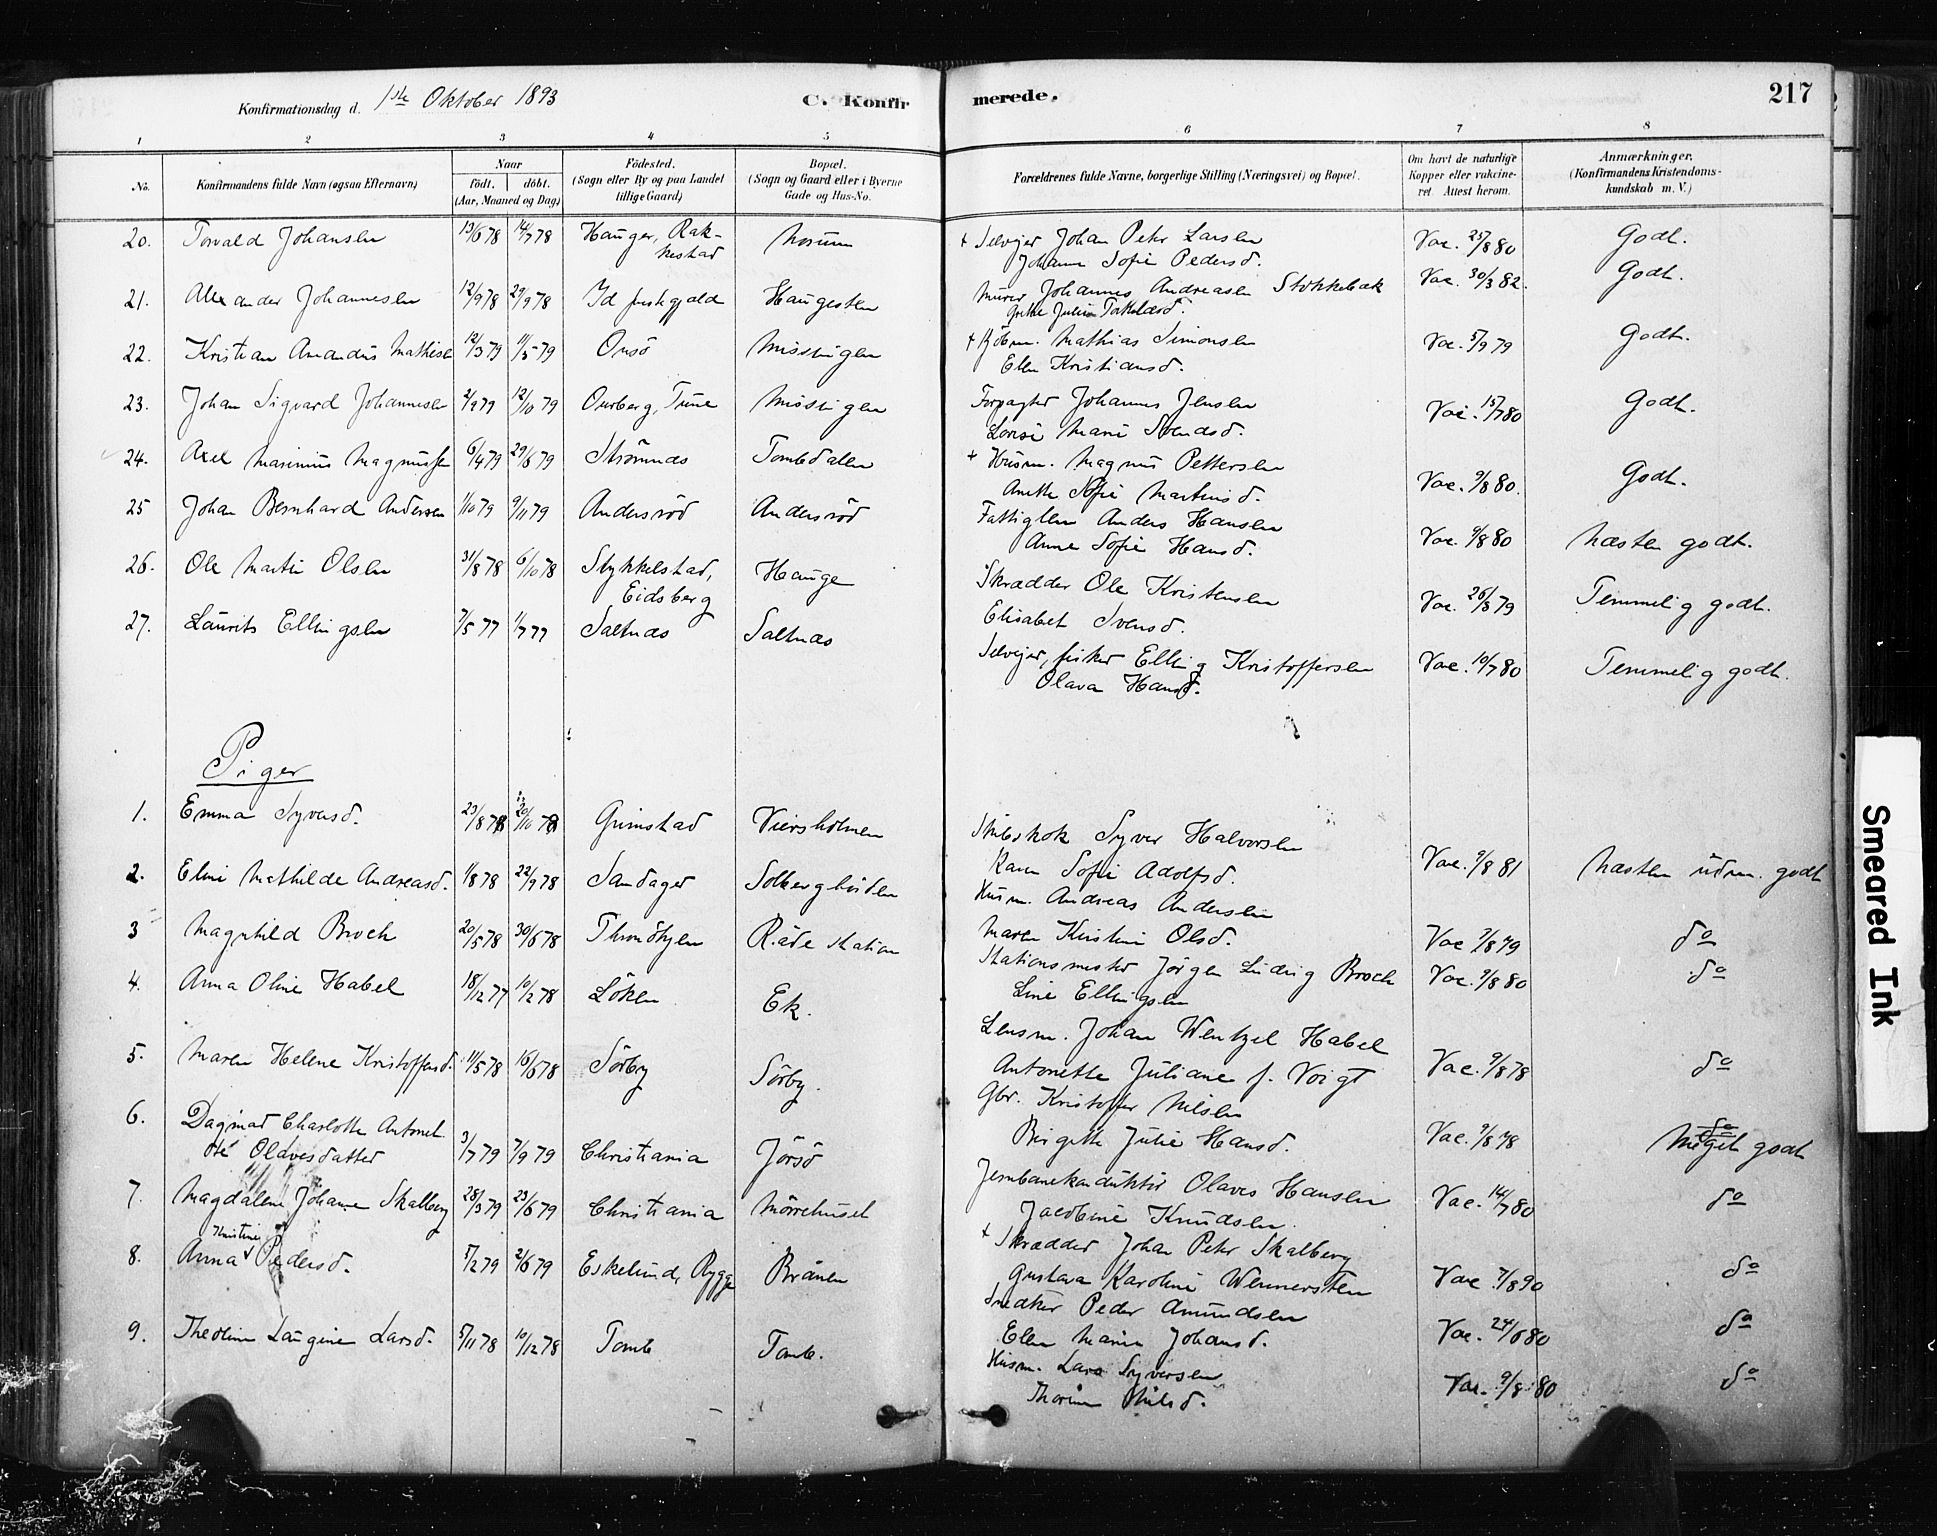 Konfirmationsdag d. 1ste Oktober 1893
C. Konfirmerede.
217
1 2 3 4 5 6 7 8
No.
Konfirmandens fulde Navn (ogsaa Efternavn)
Naar
født. døbt.
(Aar, Maaned og Dag)
Födested.
(Sogn eller By og paa Landet tillige Gaard)
Bopæl.
(Sogn og Gaard eller i Byerne Gade og Hus-No.
Forældrenes fulde Navne, borgerlige Stilling (Næringsvei) og Bopæl.
Om havt de naturlige Kopper eller vakcineret. Attest herom.
Anmærkninger.
(Konfirmandens Kristendomskundskab m. V.)
20. Torvald Johansen 13/6 78 14/7 78 Hauger, Rakkestad Mosum + Selvejer Johan Peter Larsen Vac. 25/8 80 Godt.
Johanne Sofie Pedersd.
21. Alexander Johannesen 12/9 78 29/9 78 Id præstegjæld Haugesten Murer Johannes Andreasen Stokkebæk Vac. 30/3 82. Godt.
Grethe Juline Torkildsd.
22. Kristian Amandus Mathisen 12/3 79 11/5 79 Onsö Missingen + Kjöbm. Mathias Simonsen Vac. 5/9 79 Godt.
Elen Kristiansd.
23. Johan Sigvard Johannesen 2/9 79 12/10 79 Ourberg, Tune Missingen Forpagter Johannes Jensen Vac. 15/7 80 Godt.
Lovise Marie Svendsd.
24. Axel Marinius Magnussen 6/4 79 29/6 79 Strømnæs Tombdalen + Husm. Magnus Pettersen Vac. 9/8 80. Godt.
Anette Sofie Martinsd.
25 Johan Bernhard Andersen 1/10 79 9/11 79 Andersröd Andersröd Fattiglem Anders Hansen Vac. 9/8 80 Næsten godt.
Anne Sofie Hansd.
26. Ole Martin Olsen 31/8 78 6/10 78 Stykkelstad, Eidsberg Hauge Skrædder Ole Kristensen Vac. 26/8 79 Temmelig godt.
Elisabet Svensd.
27. Laurits Ellingsen 7/5 77 1/7 77 Saltnæs Saltnæs Selvejer, fisker Elling Kristoffersen Vac. 10/7 80 Temmelig godt.
Olava Hansd.
Piger
1. Emma Syversd. 23/8 78 20/10 78 Grimstad Viersholmen Skibskok Syver Halvorsen Vac. 9/8 81 Næsten udm. godt
Karen Sofie Adolfsd.
2. Eline Mathilde Andreasd. 1/8 78 22/9 78 Sandager Solbergbuden Husm. Andreas Andersen Vac 7/8 79 do
Maren Kristine Olsd.
3 Magnhild Broch 20/5 78 30/6 78 Thronöhjem Råde station Stationsmester Jörgen Ludvig Broch Vac. 9/8 80 do
Line Ellingsen
4. Anna Oline Habel 18/12 77 10/2 78 Löken Ek. Lensm. Johan Wentzel Habel Vac. 9/8 78 do
Antonette Juliane f. Voigt
5. Maren Helene Kristoffersd. 11/5 78 16/6 78 Sörby Sörby. Gbr. Kristoffer Nilsen Vac. 9/8 78 do Meget godt
Birgitte Julie Hansd.
6. Dagmar Charlotte Antonette Olavesdatter 3/7 79 7/9 79 Christiania Jörsö Jernbanekonduktör Olaves Hansen Vac. 14/7 80 do
Jacobine Knudsen.
7. Magdalene Johanne Skalberg 28/3 79 23/6 79 Christiania Mörrehuset + Skrædder Johan Peter Skalberg Vac 7/8 90 do
Gustava Karoline Wennersten
8. Anna Kristine Pedersd. 5/2 79 2/6 79 Eskelund, Rygge Bråten Snedker Peder Amundsen Vac. 24/6 80 do
Elen Marie Johansd.
9. Theoline Laugine Larsd. 5/11 78 10/12 78 Tomb Tomb. Husm. Lars Syversen Vac. 9/8 80 do
Thorine Nilsd.
Smeared Ink